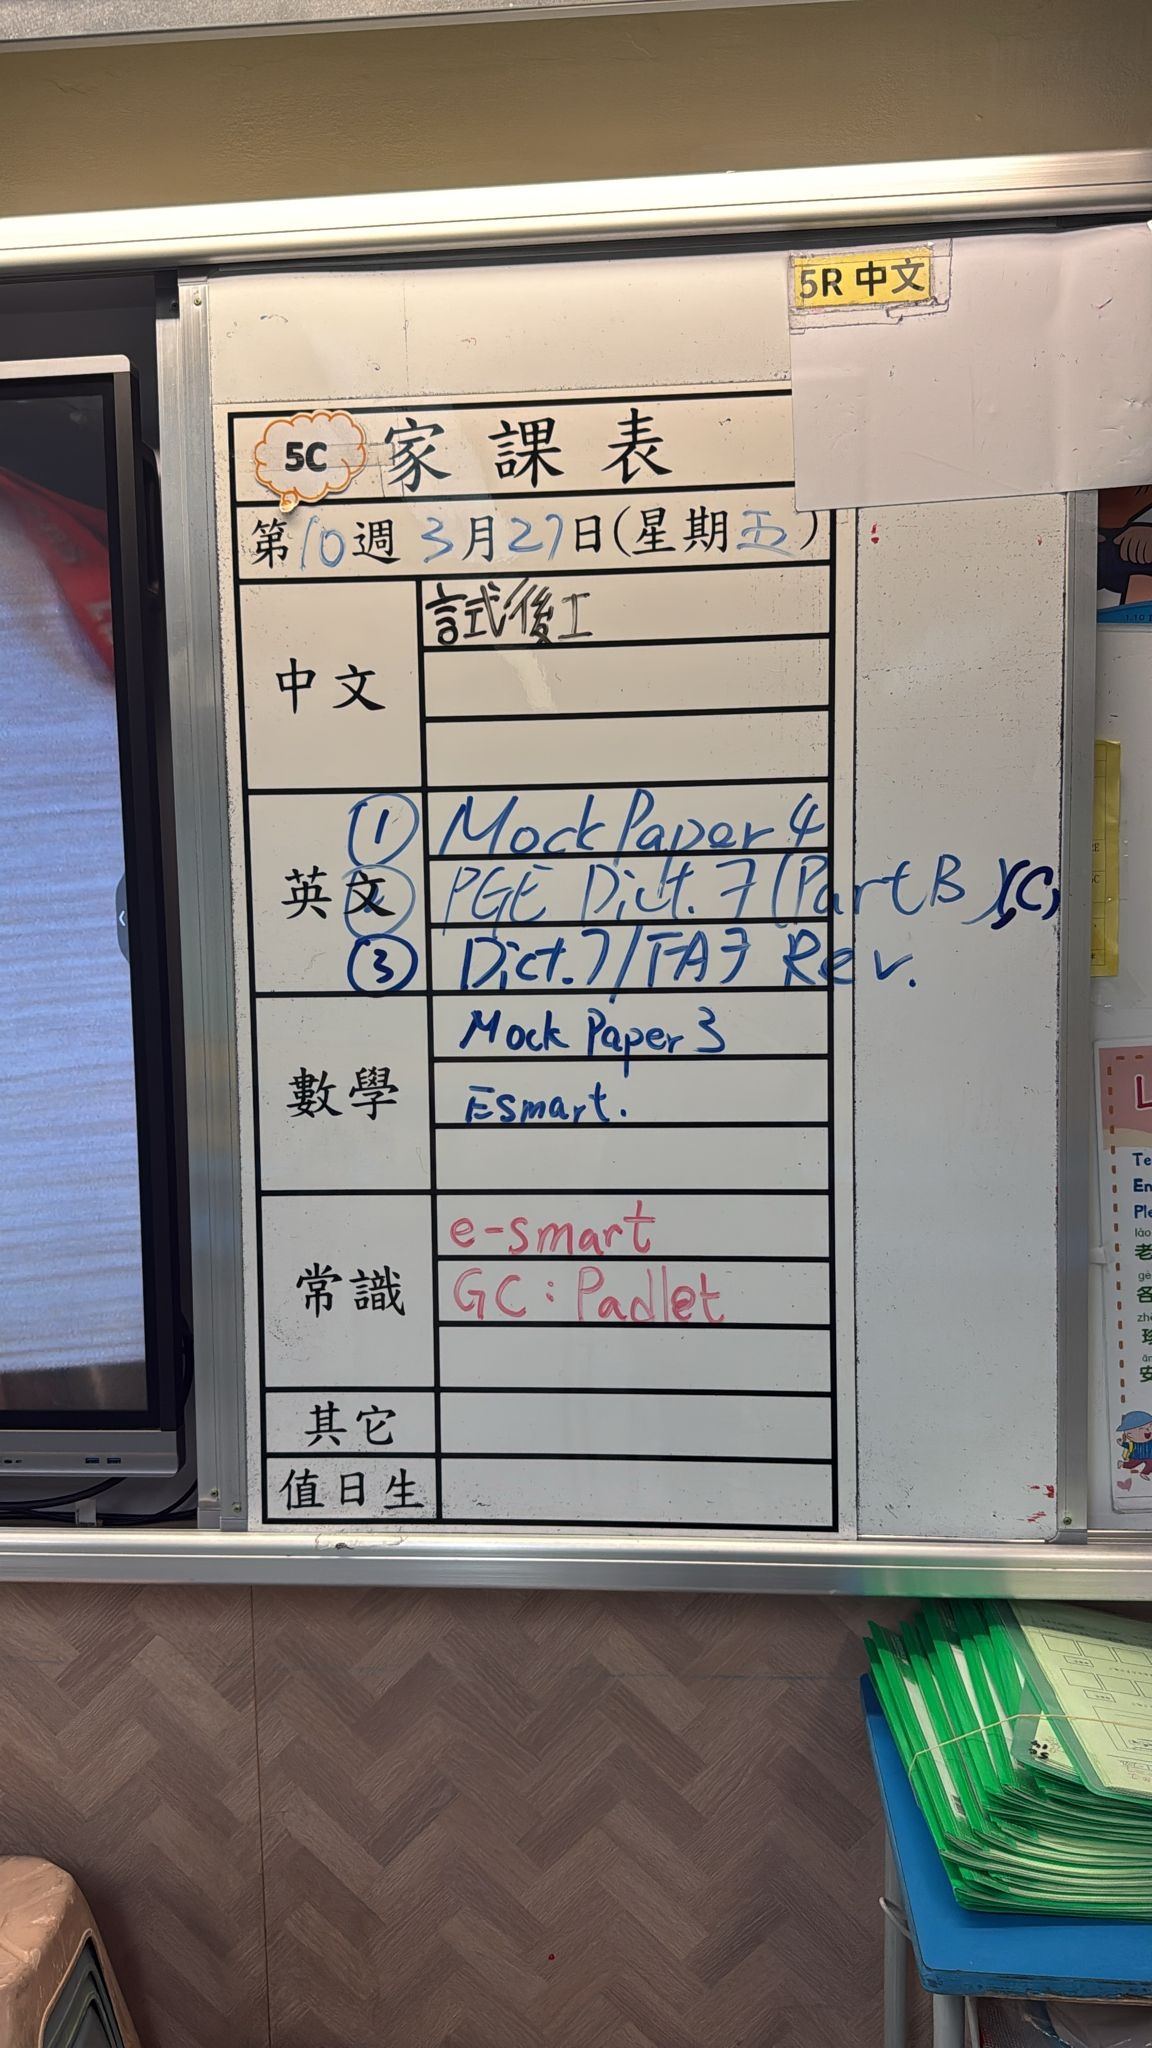 5R 中文
5C 家課表
第10週3月27日(星期五)
中文
試後工
英文
① Mock Paper 4
② PGE Dict. 7 (Part B)(C)
③ Dict.7/FA7 Rev.
數學
Mock Paper 3
Esmart.
常識
e-smart
GC: Padlet
其它
值日生